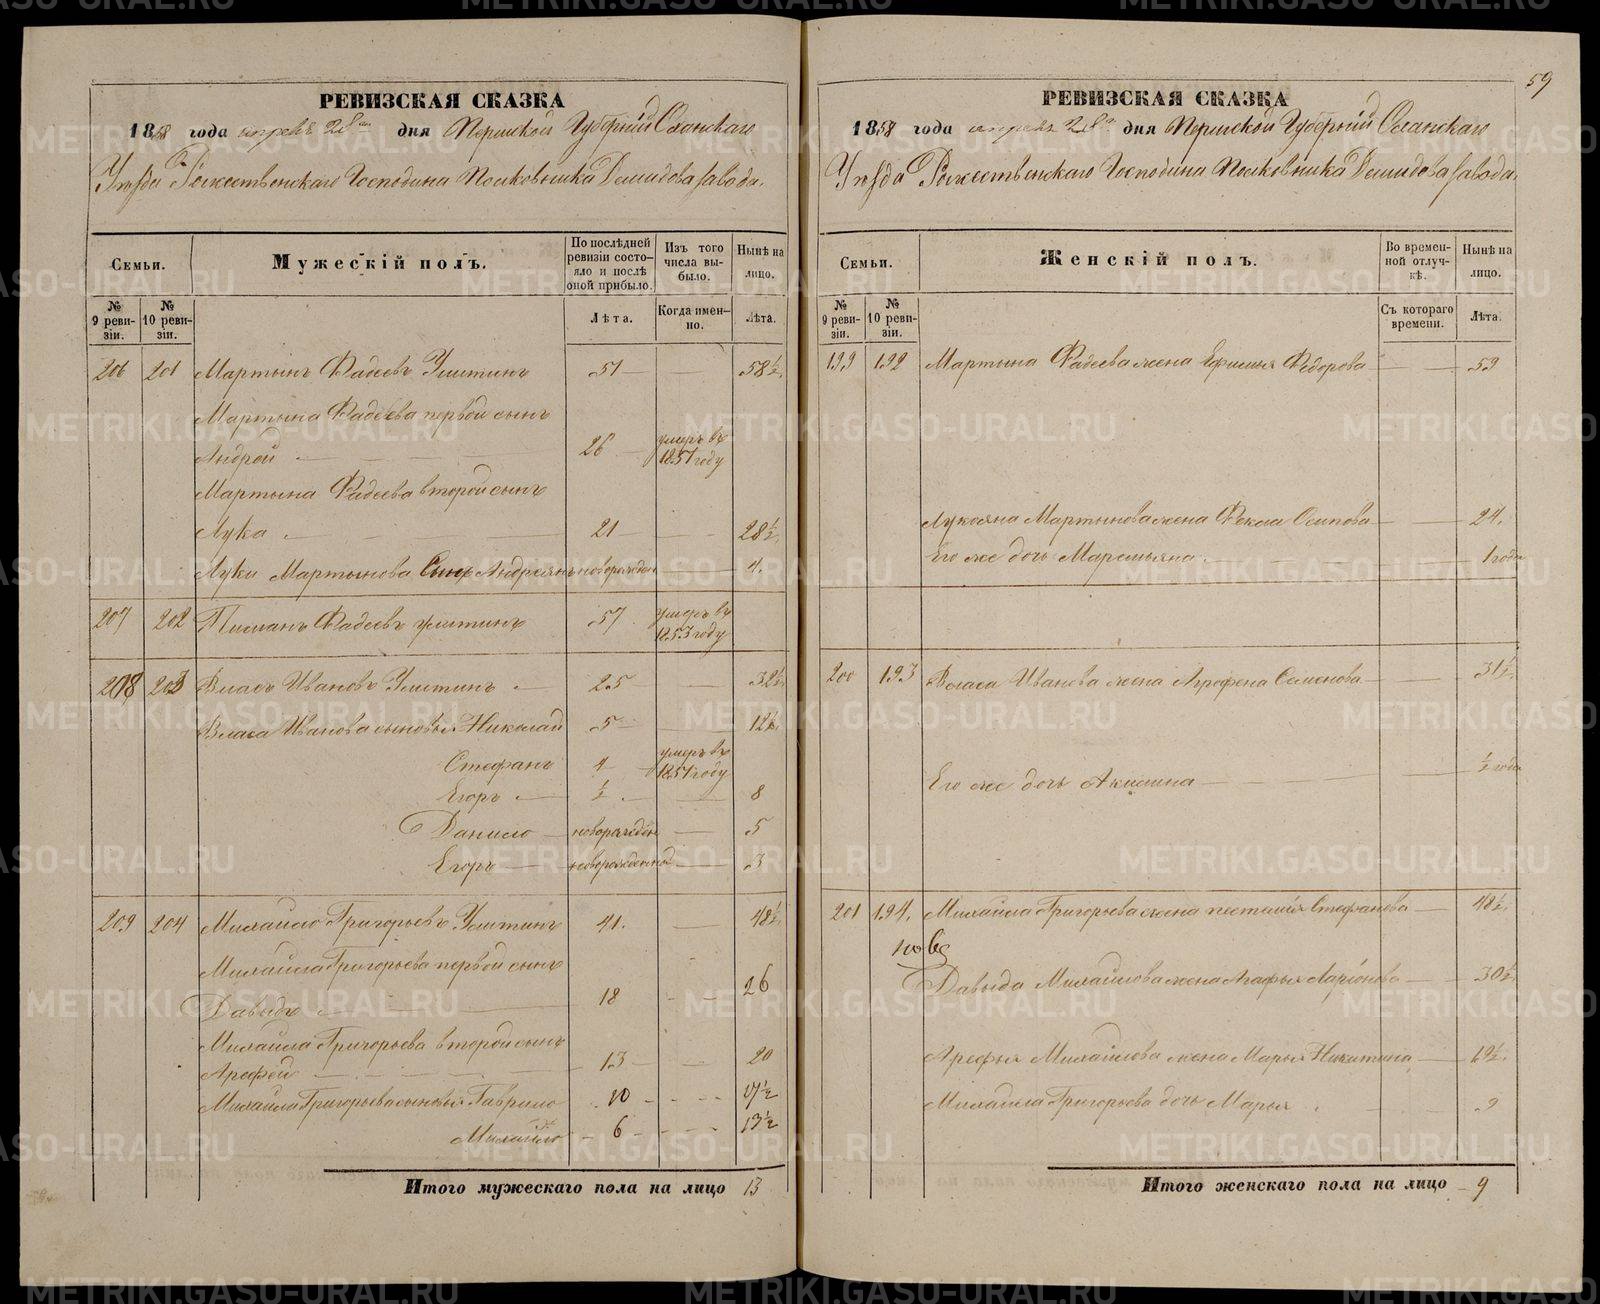 РЕВИЗСКАЯ СКАЗКА
1858 года апреля 28го дня Пермской Губернии Оханскаго
Уезда Рожественскаго Господина Полковника Демидова завода.
Семьи.
Мужескій полъ.
По послѣдней ревизіи состояло и послѣ оной прибыло.
Изъ того числа выбыло.
Нынѣ на лицо.
№ 9 ревизіи.
№ 10 ревизіи.
Лѣта.
Когда именно.
Лѣта.
206 201 Мартынъ Фадеевъ 51 — — 58½
Мартына Фадеева первой сынъ
Андрей — 26 — умеръ въ 1851 году
Мартына Фадеева второй сынъ
Лука — 21 — — 28½
Луки Мартынова сынъ Андреянъ новорожден — 4.
207 202 Пиманъ Фадеевъ 57 умеръ въ 1853 году
208 203 Власъ Ивановъ — 25 — 32½
Власа Иванова сыновья Николай 5 — 12½
Стефанъ 4 умеръ въ 1851 году
Егоръ — ½ — — 8
Данило — новорожден — 5
Егоръ — новорожденной — 3
209 204 Михайло Григорьевъ 41. — 48½
Михайла Григорьева первой сынъ
Давыдъ — 18 — — 26
Михайла Григорьева второй сынъ
Арефей — 13 — — 20
Михайла Григорьева сыновья Гаврило 10 — 17½
Михайло — 6 — 13½
Итого мужескаго пола на лицо 13
59
РЕВИЗСКАЯ СКАЗКА
1858 года апреля 28го дня Пермской Губернии Оханскаго
Уезда Рожественскаго Господина Полковника Демидова завода.
Семьи.
Женскій полъ.
Во временной отлучкѣ.
Нынѣ на лицо.
№ 9 ревизіи.
№ 10 ревизіи.
Съ котораго времени.
Лѣта.
199 192 Мартына Фадеева жена Ефимья Федорова — — 59
Мартынова жена Фекла Осипова — — 24.
Его же дочь Маремьяна. — — 1 года
200 193 Власа Иванова жена Аграфена Семенова — — 31½
Его же дочь Акилина — — ½ года
201 194. Михайла Григорьева жена Стефанова — 48½
Давыда Михайлова жена Агафья Ларіонова — — 30½
Арефья Михайлова жена Марья Никитина — 19½
Михайла Григорьева дочь Марья . — — 9
Итого женскаго пола на лицо 9
METRIKI.GASO-URAL.RU